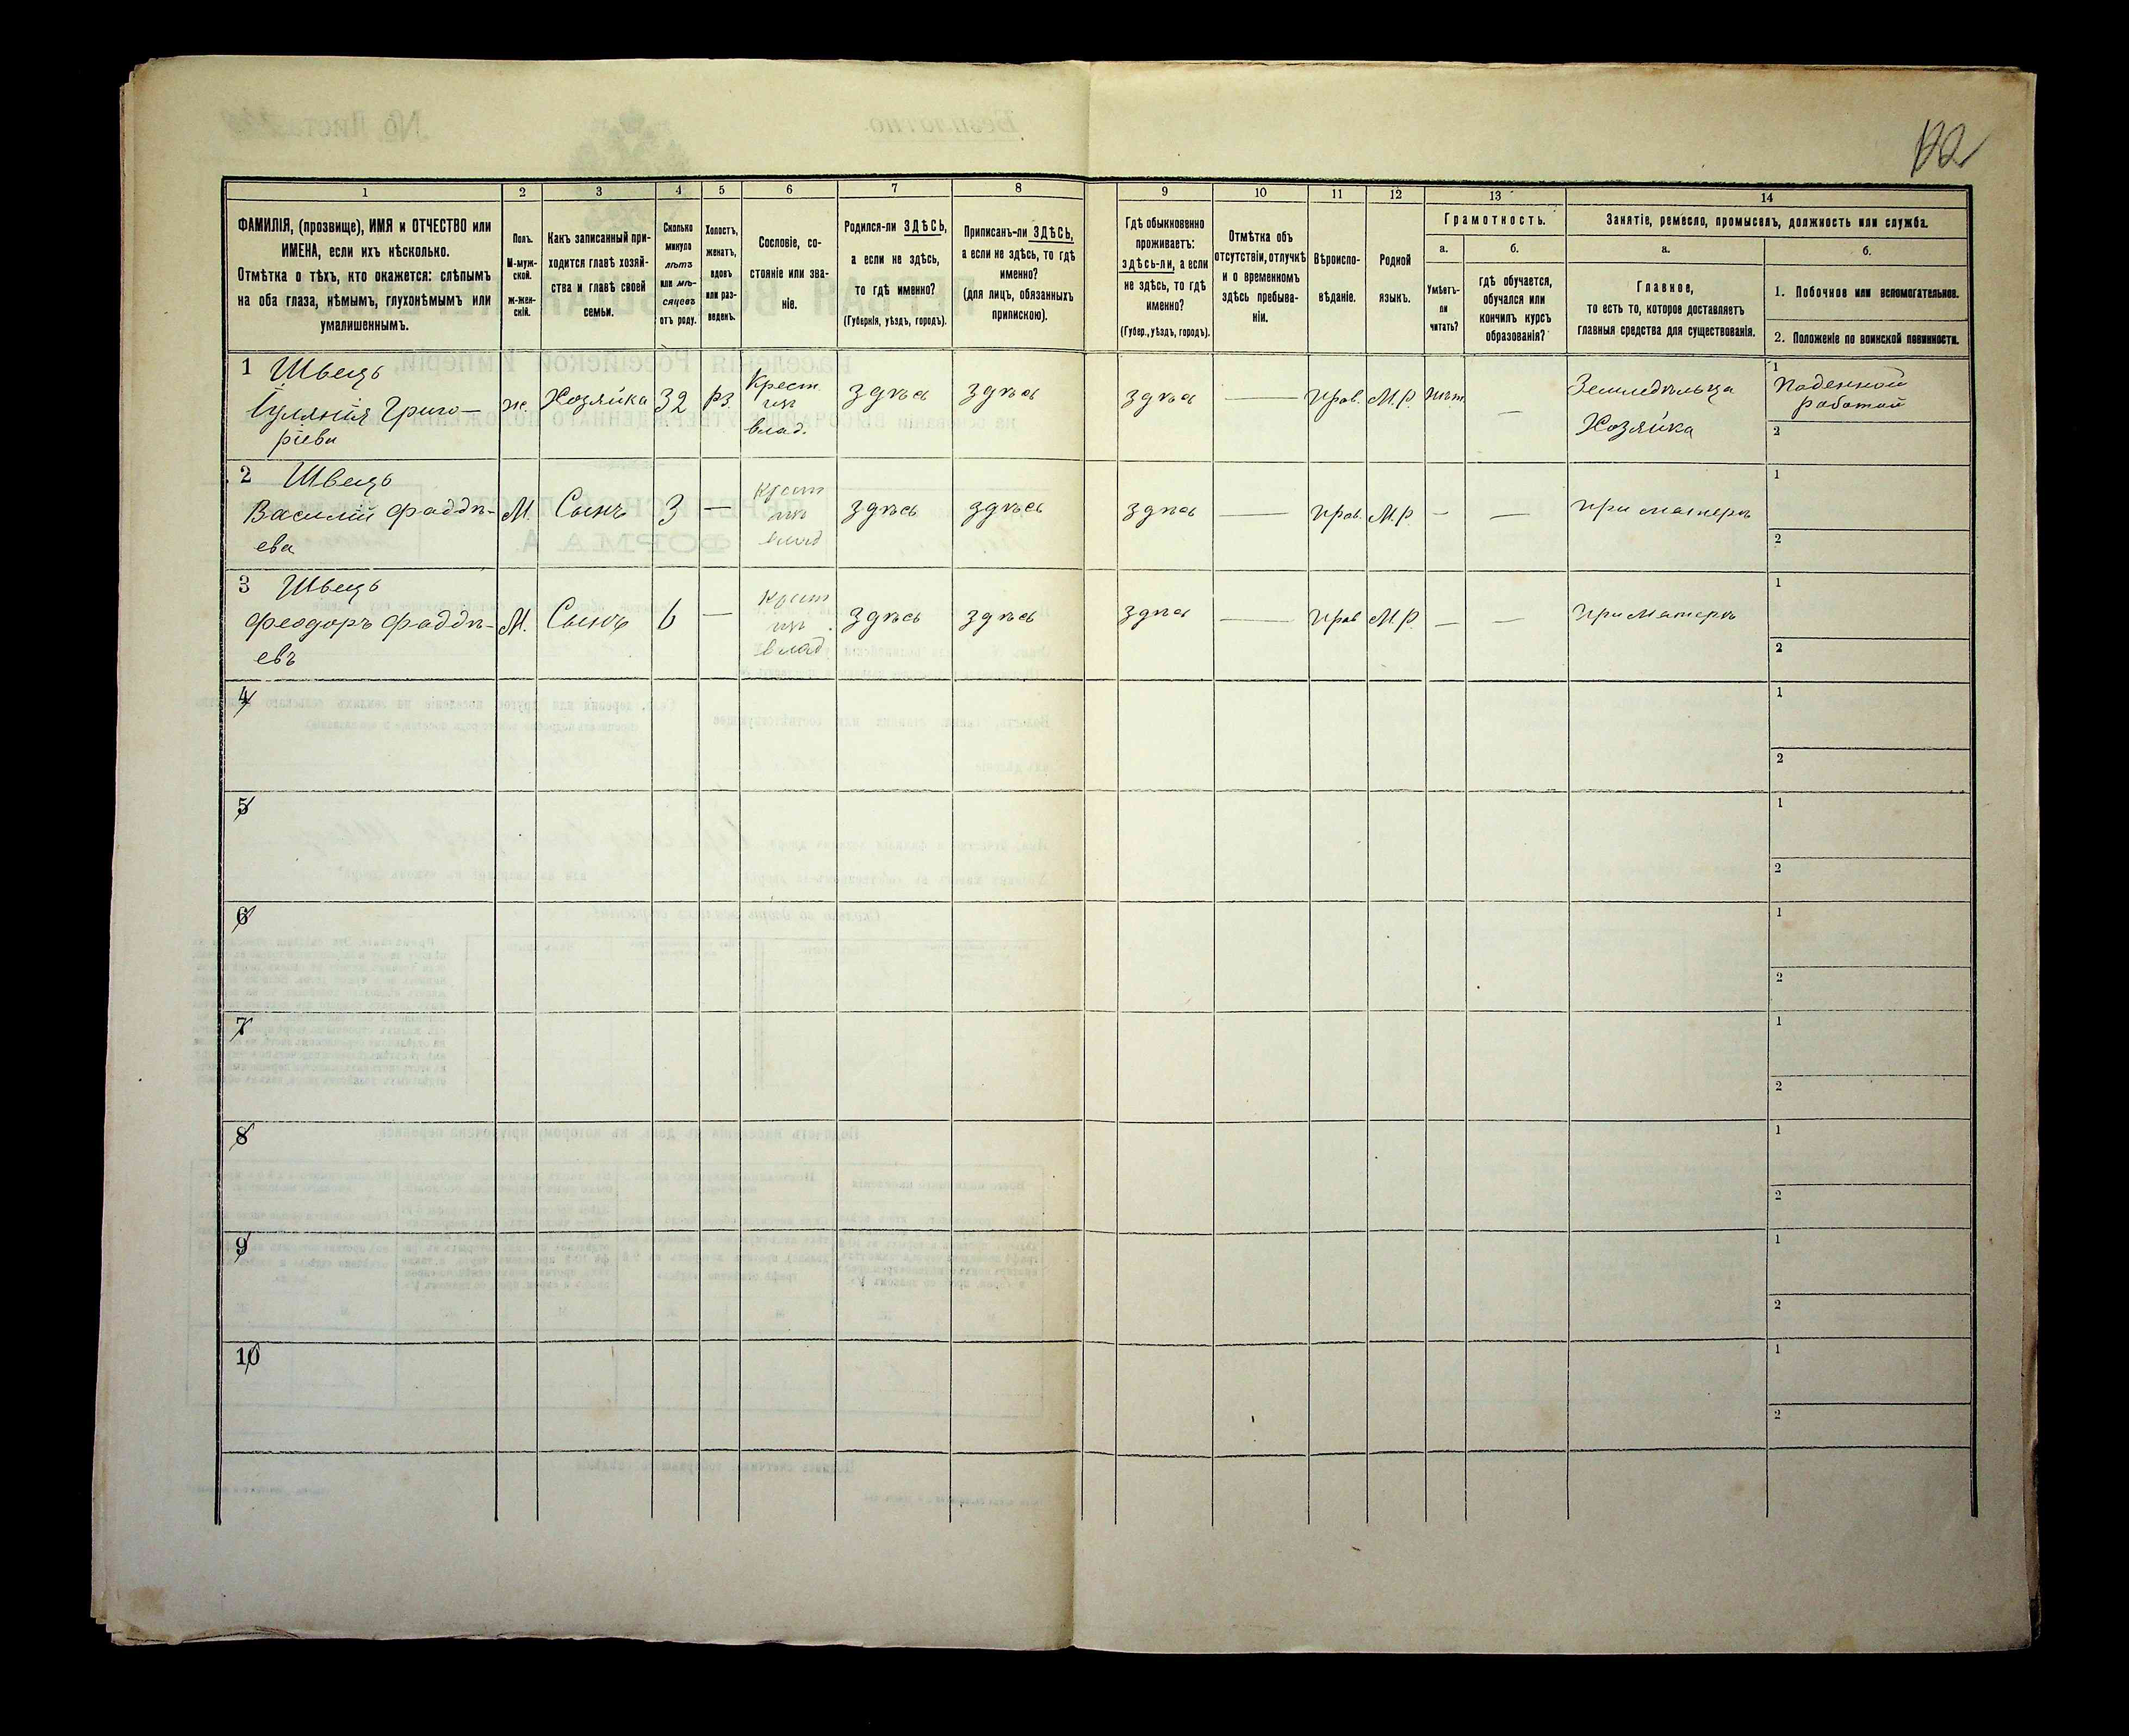 122
1 2 3 4 5 6 7 8 9 10 11 12 13 14
ФАМИЛІЯ, (прозвище), ИМЯ и ОТЧЕСТВО или
ИМЕНА, если ихъ нѣсколько.
Отмѣтка о тѣхъ, кто окажется: слѣпымъ
на оба глаза, нѣмымъ, глухонѣмымъ или
умалишеннымъ.
Полъ.
М-муж-
ской.
Ж-жен-
скій.
Какъ записанный при-
ходится главѣ хозяй-
ства и главѣ своей
семьи.
Сколько
минуло
лѣтъ
или мѣ-
сяцевъ
отъ роду.
Холостъ,
женатъ,
вдовъ
или раз-
веденъ.
Сословіе, со-
стояніе или зва-
ніе.
Родился-ли ЗДѢСЬ,
а если не здѣсь,
то гдѣ именно?
(Губернія, уѣздъ, городъ).
Приписанъ-ли ЗДѢСЬ,
а если не здѣсь, то гдѣ
именно?
(для лицъ, обязанныхъ
припискою).
Гдѣ обыкновенно
проживаетъ:
здѣсь-ли, а если
не здѣсь, то гдѣ
именно?
(Губер., уѣздъ, городъ).
Отмѣтка объ
отсутствіи, отлучкѣ
и о временномъ
здѣсь пребыва-
ніи.
Вѣроиспо-
вѣданіе.
Родной
языкъ.
Грамотность.
а.
Умѣетъ-
ли
читать?
б.
гдѣ обучается,
обучался или
кончилъ курсъ
образованія?
Занятіе, ремесло, промыселъ, должность или служба.
а.
Главное,
то есть то, которое доставляетъ
главныя средства для существованія.
б.
1. Побочное или вспомогательное.
2. Положеніе по воинской повинности.
1 Швецъ
Іуліянія Григо-
ріева
ж.
Хозяйка
32
рз.
Крест.
изъ
влад.
здѣсь
здѣсь
здѣсь
—
Прав.
М.Р.
Нѣт.
—
Земледѣльца
Хозяйка
1
Поденной
работой
2
2 Швецъ
Василій Фаддѣ-
ева
М.
Сынъ
3
—
Крест
изъ
влад
здѣсь
здѣсь
здѣсь
—
Прав.
М.Р.
—
—
При матерѣ
1
2
3 Швецъ
Феодоръ Фаддѣ-
евъ
М.
Сынъ
—
Крест
изъ
влад
здѣсь
здѣсь
здѣсь
—
Прав
М.Р.
—
—
При Матерѣ
1
2
4
1
2
5
1
2
6
1
2
7
1
2
8
1
2
9
1
2
10
1
2